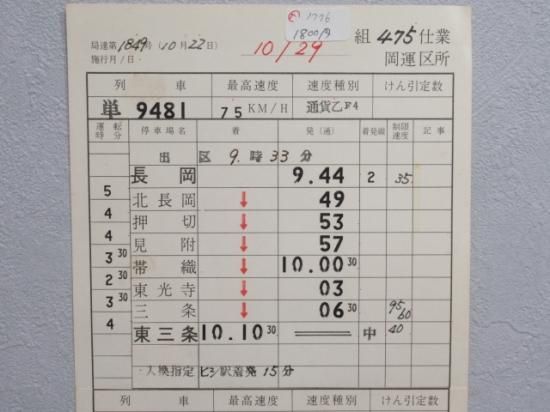 1776
1800円
局達第1849号(10月22日) 10/29 組 475仕業
施行月/日 岡運区所
列車 最高速度 速度種別 けん引定数
単 9481 75 KM/H 通貨乙F4
運転時分 停車場名 着 発(通) 着発線 制限速度 記事
出区 9.時33分
長岡 9.44 2 35
5
北長岡 ↓ 49
4
押切 ↓ 53
4
見附 ↓ 57
3 30
帯織 ↓ 10.00 30
2 30
東光寺 ↓ 03
3 30
三条 ↓ 06 30 95 60
4
東三条 10.10 30 中 40
入換指定 ヒシ駅着発15分
列車 最高速度 速度種別 けん引定数